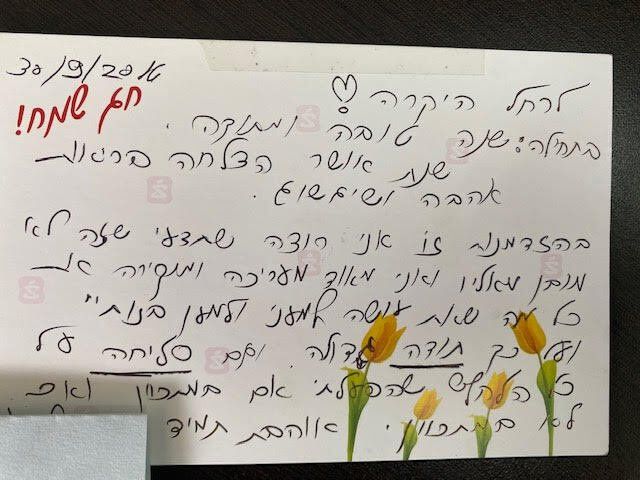 30/9/2019
חג שמח!
לרחל היקרה!
בתחילה: שנה טובה ומתוקה.
שנת אושר הצלחה בריאות
אהבה ושיגשוג.
בהזדמנות זו אני רוצה שתדעי שזה לא
מובן מאליו ואני מאוד מעריכה ומוקירה את
כל מה שאת עושה למעני ולמען בנותיי
ועל כך תודה גדולה. וגם סליחה על
כל שהפעלתי אם במתכוון ואם
לא במתכוון. אוהבת תמיד